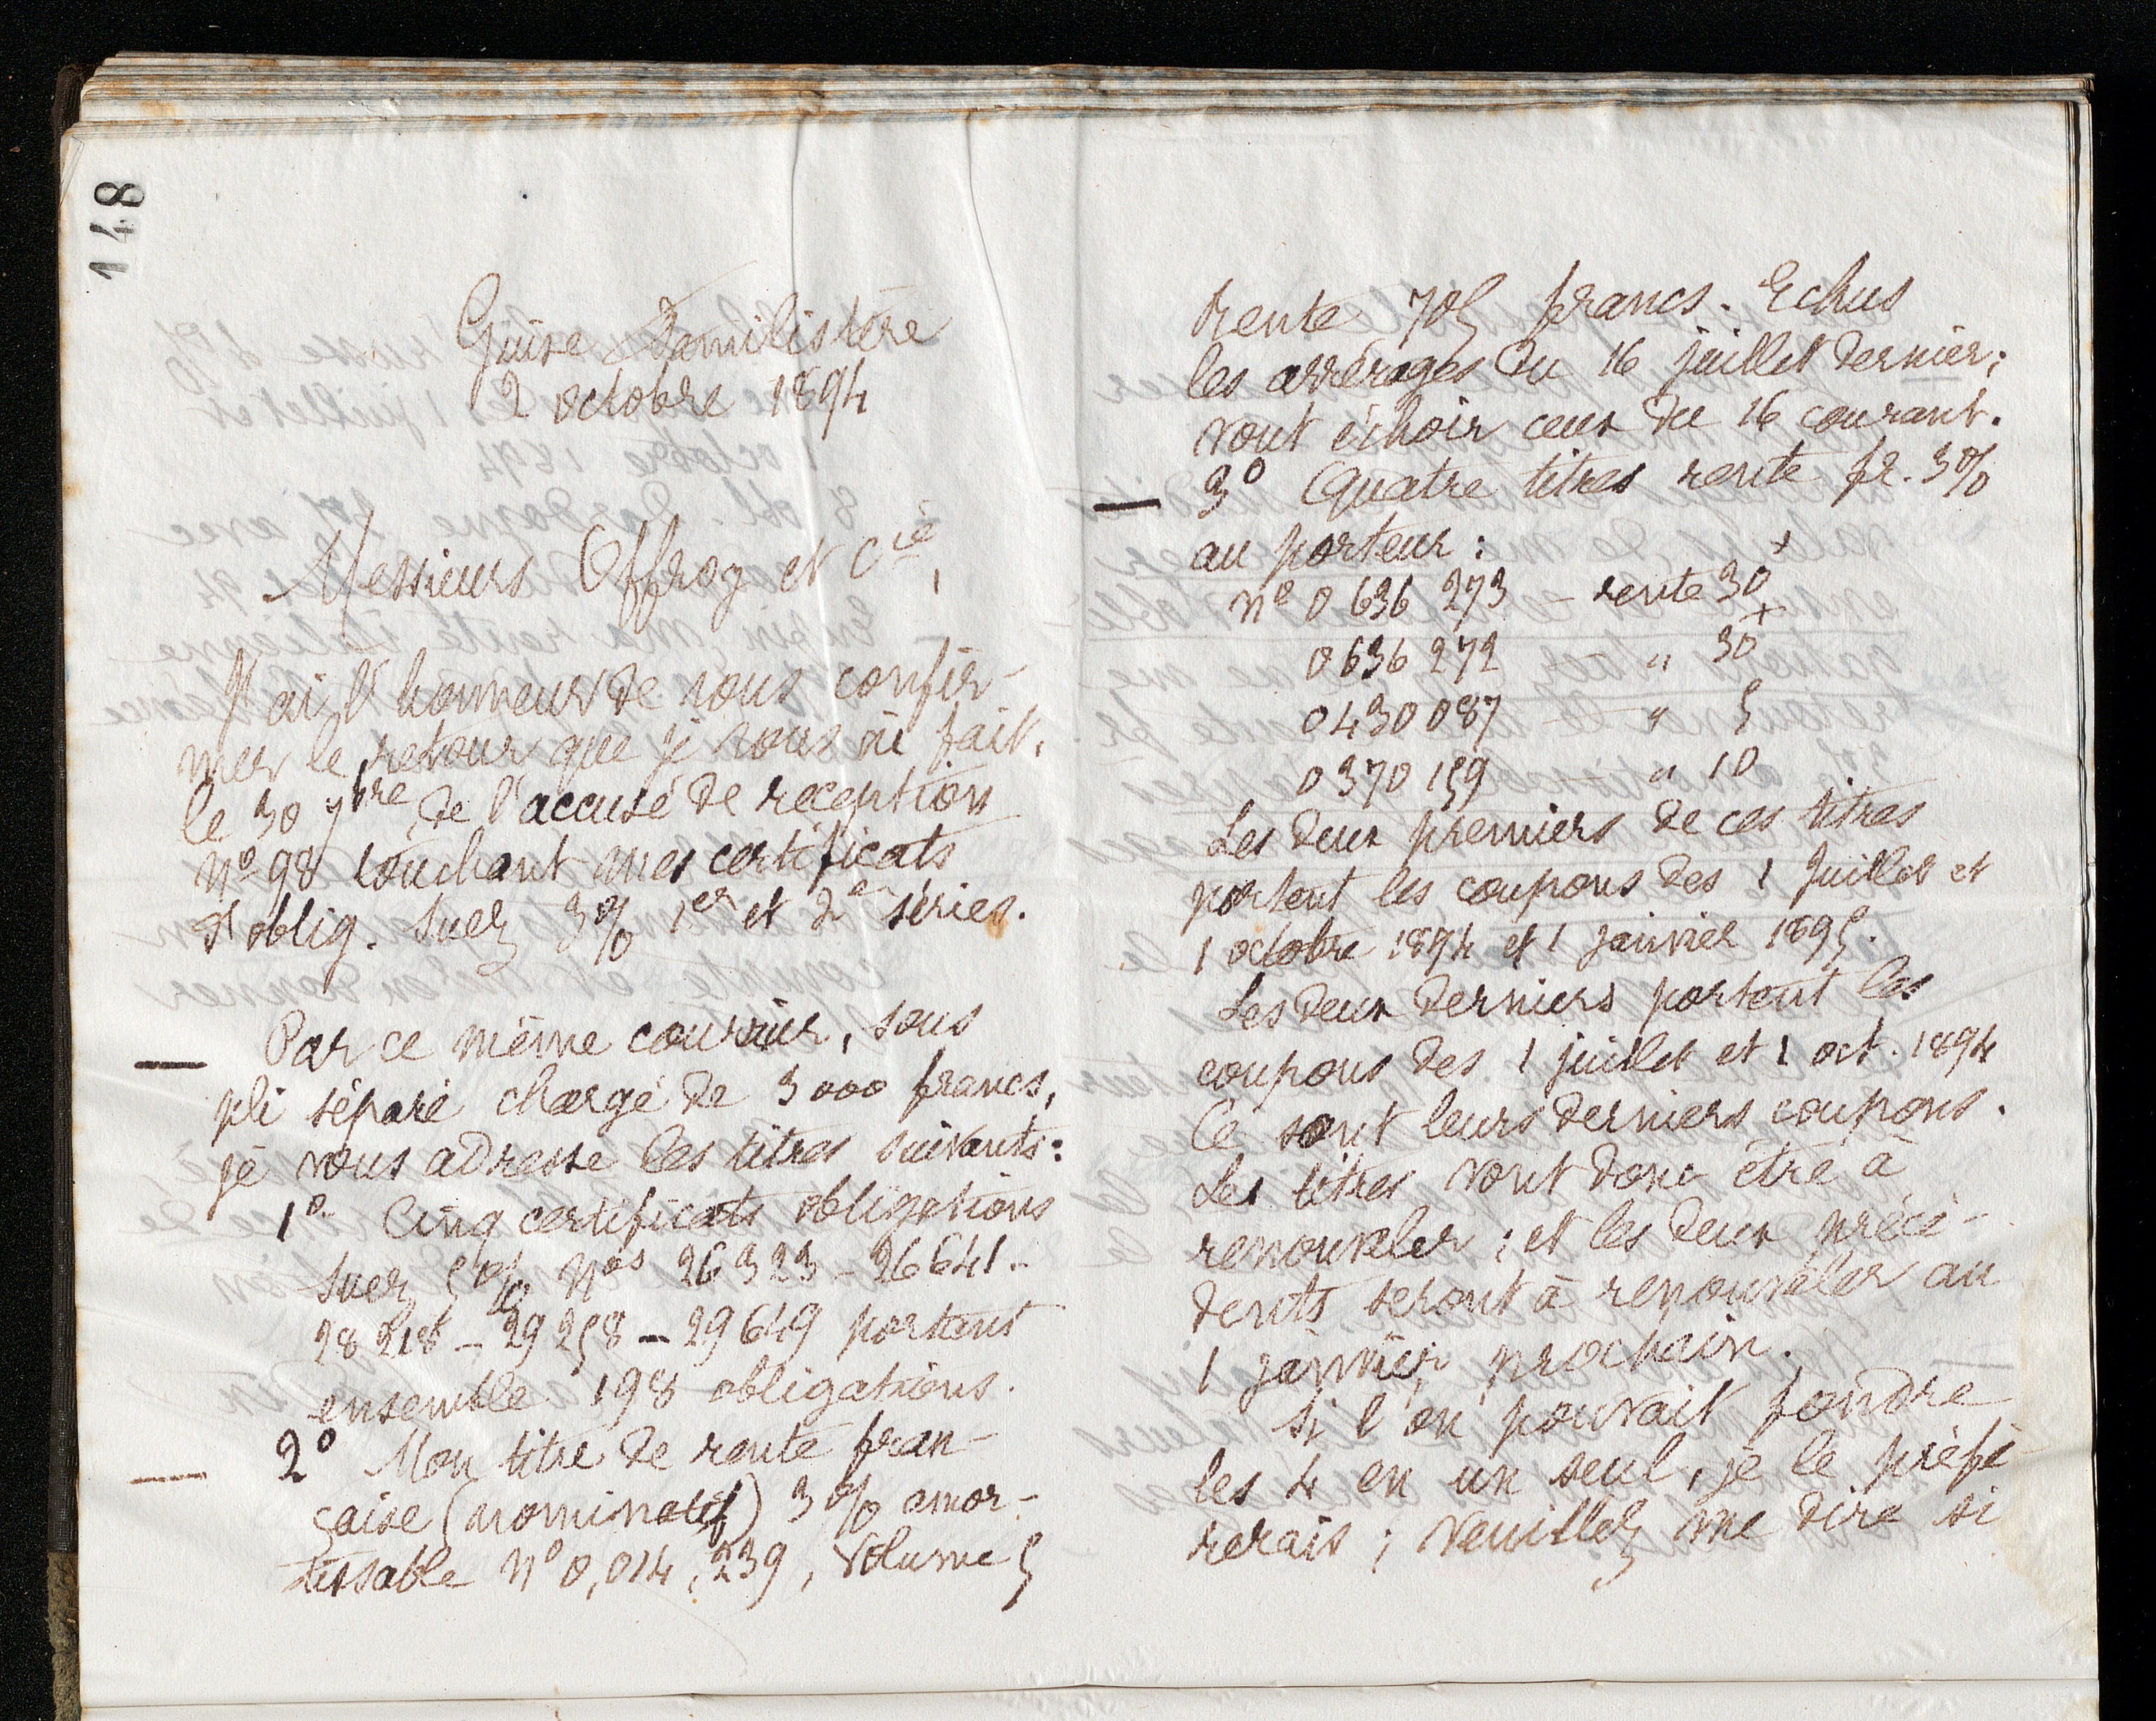 148
Guise Familistère
2 octobre 1894
Messieurs Offroy et Cie,
J'ai l'honneur de vous confir-
mer le retour que je vous ai fait,
le 30 7bre, de l'accusé de réception
No 98 touchant mes certificats
d'oblig. Suez 3% 1er et 2e séries.
Par ce même courrier, sous
pli séparé chargé de 3000 francs,
je vous adresse les titres suivants:
1o Cinq certificats obligations
Suez 5% Nos 26323 - 26641 -
28218 - 29258 - 29649 portant
ensemble 198 obligations.
2o Mon titre de rente fran-
çaise (nominatif) 3% amor-
tissable No 0,014,239, Volume 5
rente 705 francs. Echus
les arrérages du 16 juillet dernier;
vont échoir ceux du 16 courant.
3o Quatre titres rente fr. 3%
au porteur:
No 0636 273 - rente 30 +
0636 272 " 30 +
0430087 - " 5
0370159 " 10
Les deux premiers de ces titres
portent les coupons des 1 Juillet et
1 octobre 1894 et 1 janvier 1895.
Les deux derniers portent les
coupons des 1 juillet et 1 oct. 1894
Ce sont leurs derniers coupons.
Les titres vont donc être à
renouveler; et les deux précé-
dents seront à renouveler au
1 janvier prochain.
Si l'on pouvait fondre
les 4 en un seul, je le préfé
rerais; Veuillez me dire si